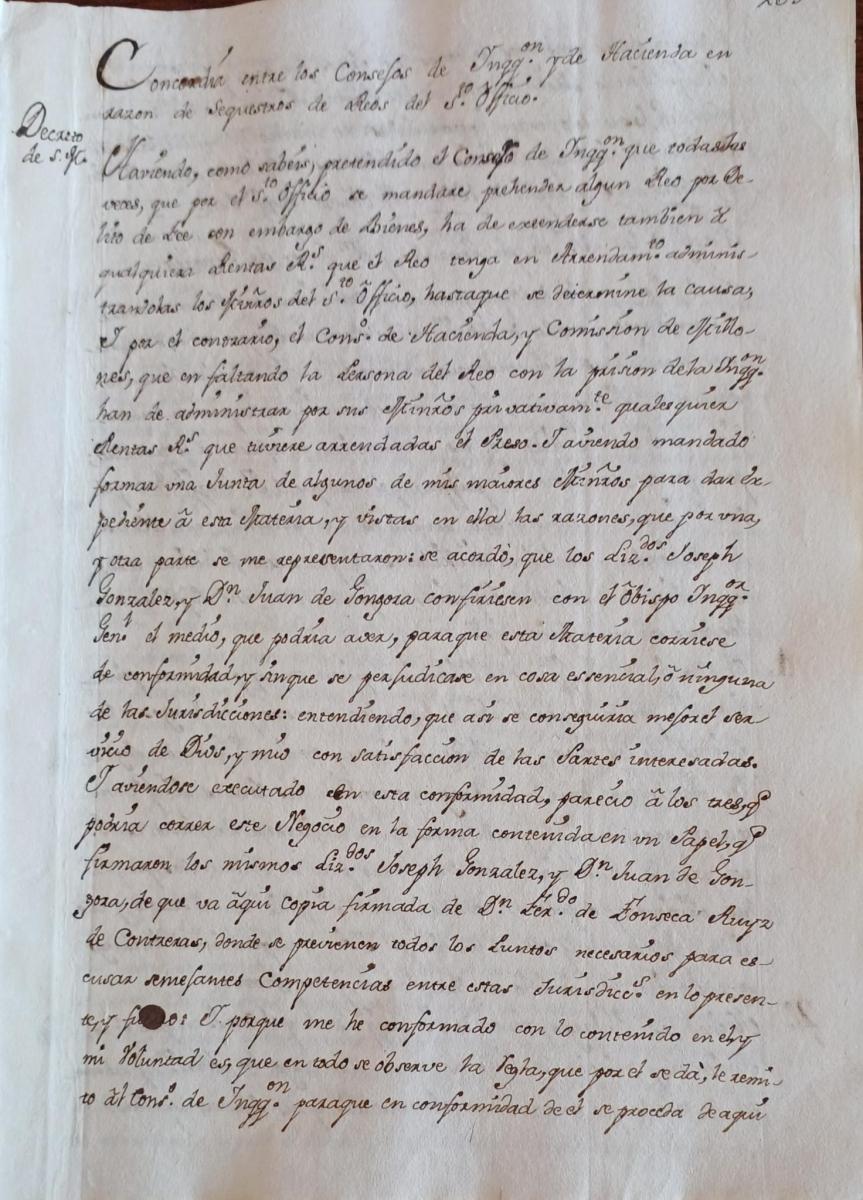 Concordia entre los Consejos de Inqq.on y de Hacienda en
razon de Sequestros de Reos del S.to Officio.
Decreto
de S. M.
Haviendo, como sabeis, pretendido el Consejo de Inqq.on que todas las
veces, que por el S.to Officio se mandare prehender algun Reo por De-
lito de Fee con embargo de Bienes, ha de extenderse tambien à
qualquiera Rentas R.s que el Reo tenga en Arrendam.to adminis-
trandolas los Minr̃os del S.to Officio, hasta que se determine la causa;
I por el contrario, el Cons.o de Hacienda, y Comission de Millo-
nes, que en faltando la Persona del Reo con la prision de la Inqq.on
han de administrar por sus Minr̃os privativam.te qualesquier
Rentas R.s que tuviere arrendadas el Preso. I aviendo mandado
formar vna Junta de algunos de mis maiores Minr̃os para dar ex-
pediente à esta Materia, y vistas en ella las razones, que por vna,
y otra parte se me representaron: se acordò, que los Liz.dos Joseph
Gonzalez, y D.n Juan de Gongora confiriesen con el Obispo Inqq.or
Gen.l el medio, que podria aver, para que esta Materia corriese
de conformidad, y sin que se perjudicase en cosa essencial, à ninguna
de las Jurisdicciones: entendiendo, que asi se conseguiria mejor el ser-
vicio de Dios, y mio con satisfaccion de las Partes interesadas.
I aviendose executado en esta conformidad, parecio à los tres, q̃
podria correr este Negocio en la forma contenida en vn Papel, q̃
firmaron los mismos Liz.dos Joseph Gonzalez, y D.n Juan de Gon-
gora, de que va aqui copia firmada de D.n Fer.do de Fonseca Ruyz
de Contreras, donde se previenen todos los Puntos necesarios para es-
cusar semejantes Competencias entre estas Jurisdicc.s en lo presen-
te, y I porque me he conformado con lo contenido en el, y
mi Voluntad es, que en todo se observe la regla, que por el se dà, le remi-
to al Cons.o de Inqq.on para que en conformidad de el se proceda de aqui